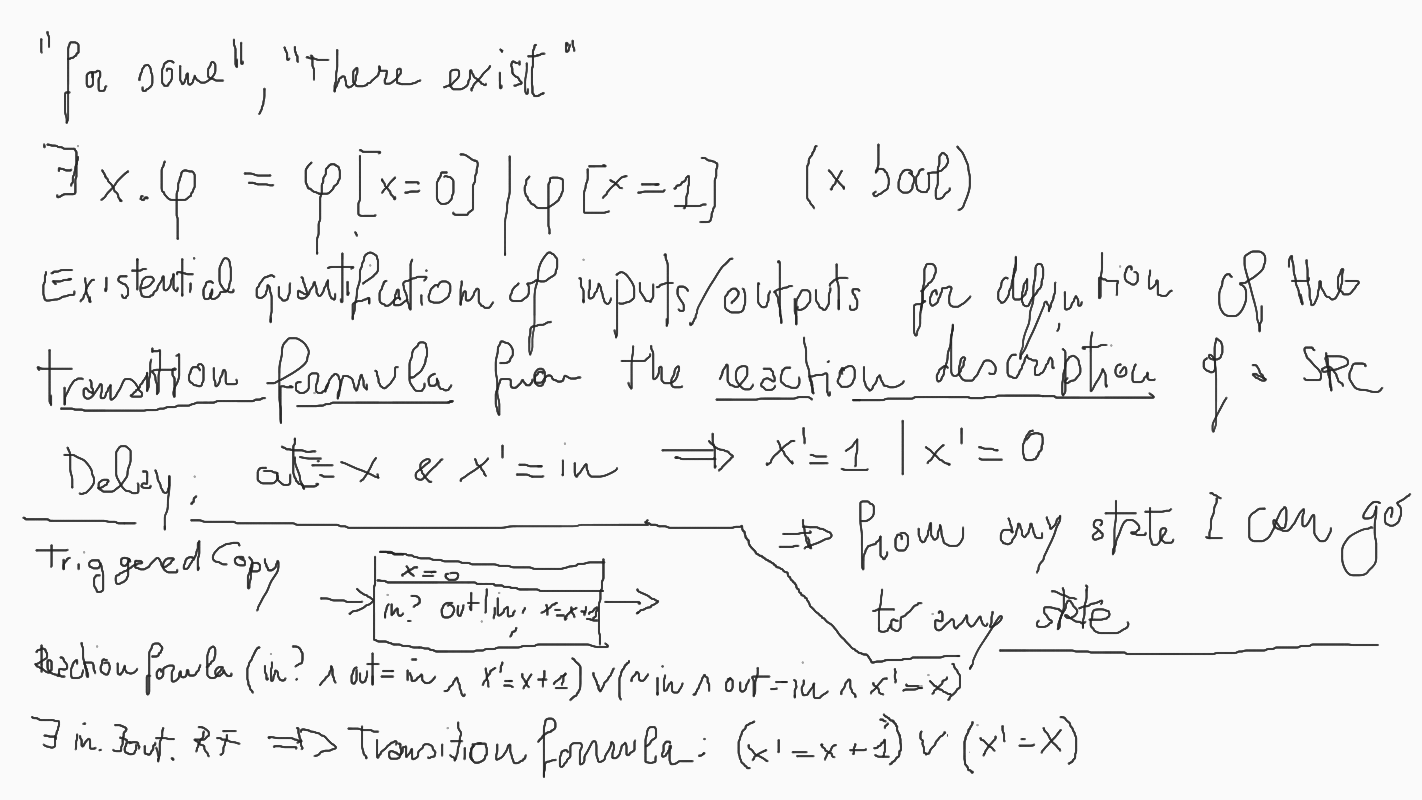 "for some", "There exist"
∃ x.φ = φ[x=0] | φ[x=1] (x bool)
Existential quantification of inputs/outputs for definition of the
transition formula from the reaction description of a SRC
Delay: out=x & x'=in ⟹ x'=1 | x'=0
⟹ from any state I can go
to any state
Triggered Copy
x=0
in? out!in; x=x+1
Reaction formula (in? ∧ out=in ∧ x'=x+1) ∨ (~in ∧ out=in ∧ x'=x)
∃ in.∃out. RF ⟹ Transition formula: (x'=x+1) ∨ (x'=x)